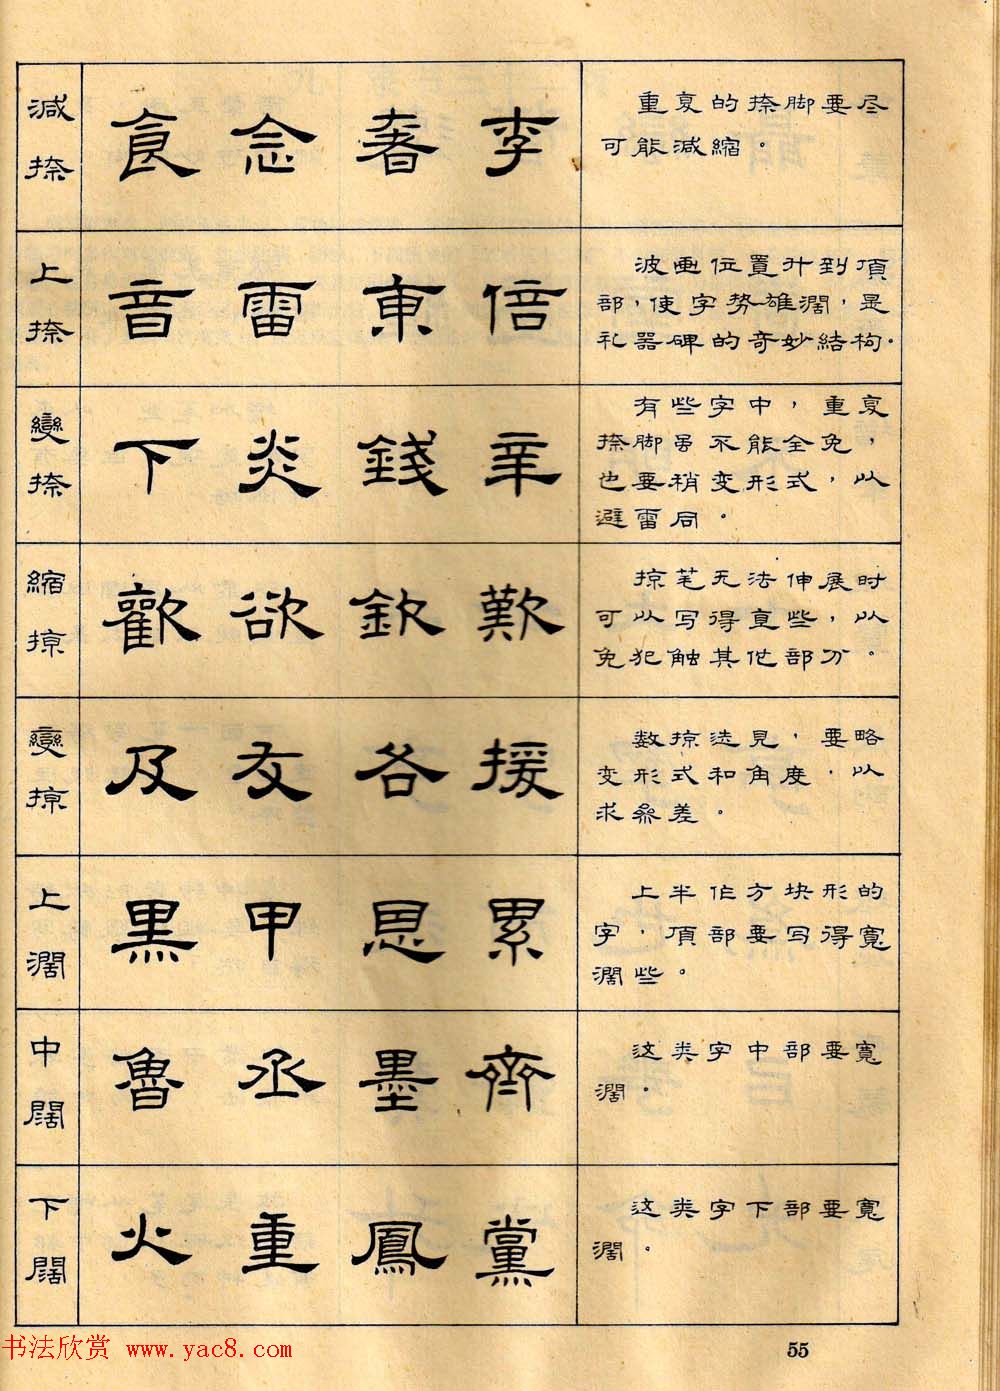 減捺
食念著李
重复的捺脚要尽
可能减縮。
上捺
音雷東倍
波画位置升到頂
部，使字势雄濶，是
礼器碑的奇妙結构.
變捺
下炎錢辛
有些字中，重复
捺脚虽不能全免，
也要稍变形式，以
避雷同。
縮掠
歡欲欽歎
掠笔无法伸展时
可以写得直些，以
免犯触其他部分。
變掠
及友各援
数掠迭見，要略
变形式和角度，以
求参差。
上濶
黒甲思累
上半作方块形的
字，頂部要写得寬
濶些。
中闊
魯丞墨齊
这类字中部要寬
濶。
下闊
火重鳳黨
这类字下部要寬
濶。
书法欣赏 www.yac8.com
55